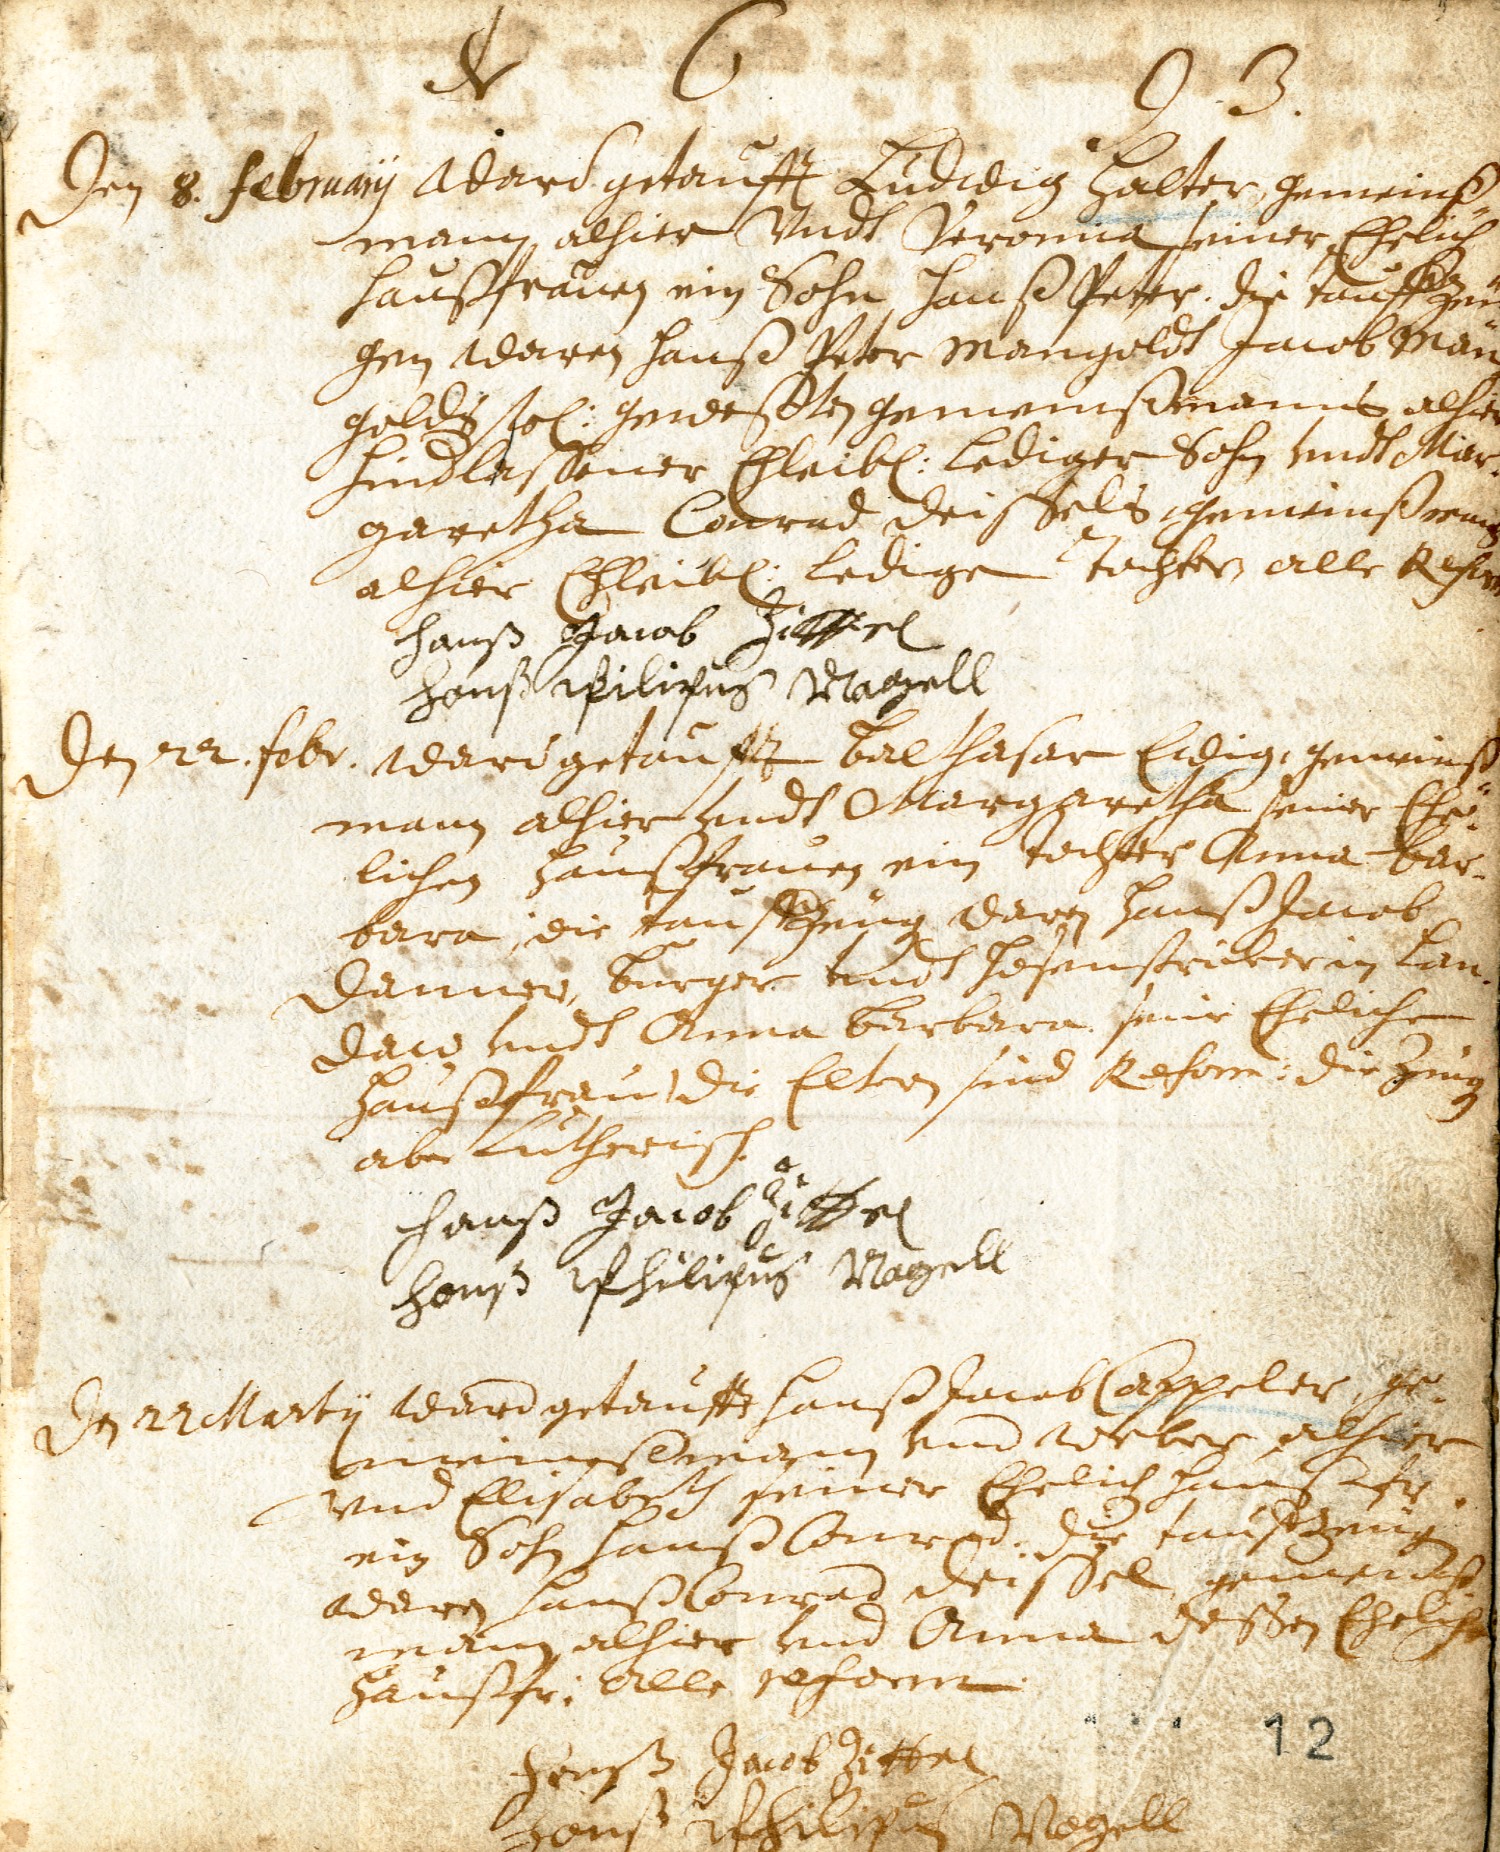 1 6 9 3.
Den 8. February ward getaufft Ludwig Halter, gemeinß
mann alhier Undt Veronica seiner Ehelich
haußfrauen ein Sohn Hanß Peter. die tauffzeü
gen waren Hanß Peter Mangoldt Jacob Man
golds sel: geweßten gemeinßmanns alhier
hindlaßener Ehleibl: Lediger Sohn undt Mar-
garetha Conrad Deissels gemeinßmans
alhier Ehleibl: Ledige Tochter alle Reform
Hanß Jacob Zittel
Hanß Philipus Nagell
Den 22. febr. ward getaufft Balthasar Ledig, gemeinß
mann alhier undt Margaretha seiner Ehe-
lichen Haußfrauen ein tochter Anna Bar-
bara, die tauffzeug waren Hanß Jacob
Danner, Burger undt hosenstricker in Lan-
daw undt Anna Barbara seine Eheliche
Haußfrau, die Eltern sind Reform: die Zeug
aber Lutherisch.
Hanß Jacob Zittel
Hanß Philipus Nagell
Den 22 Marty ward getaufft Hanß Jacob Cappeler, ge-
meinßmann und weber alhier
und Elisabeth seiner Ehelich haußfr.
ein Sohn Hanß Conrad. die tauffzeug
waren Hanß Conrad Deissel gemeinß
mann alhier und Anna dessen Eheliche
Haußfr: alle reform
Hanß Jacob Zittel
Hanß Philipus Nagell
12